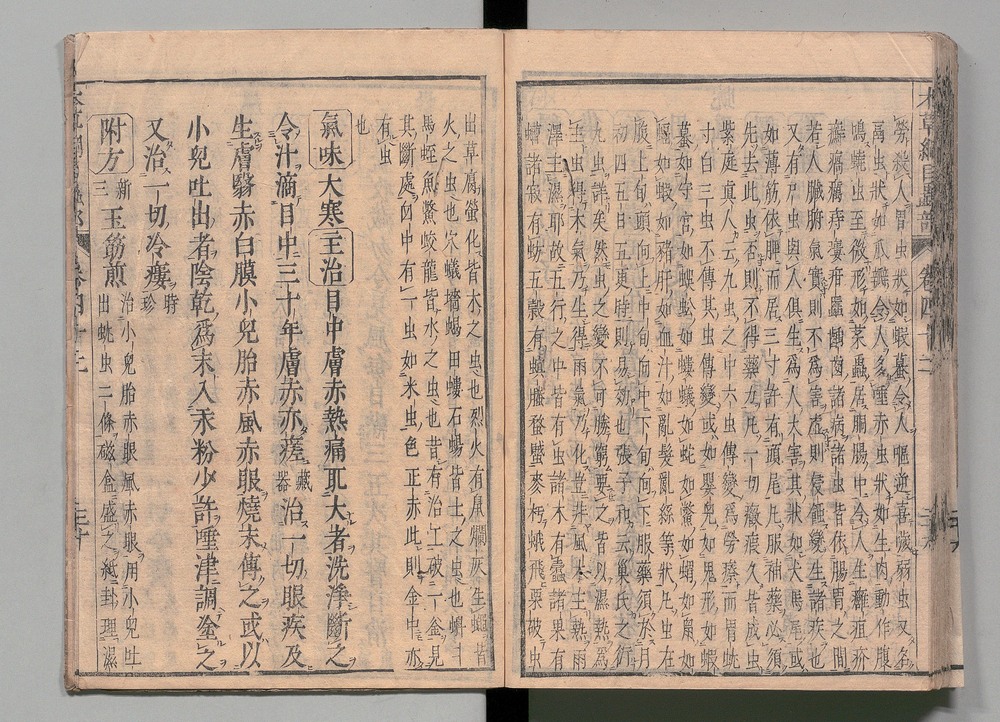 本草綱目蟲部 卷四十二
勞殺人胃虫狀如蝦蟇令人嘔逆喜噦弱虫又名
膈虫狀如瓜瓣令人多唾赤虫狀如生肉動作腹
鳴蟯虫至微形如菜蟲居胴腸中令人生癰疽疥
癬瘑癘痔瘻疳䘌齲齒諸病諸虫皆依腸胃之間
若人臟腑氣實則不爲害虛則侵蝕變生諸疾也
又有尸虫與人俱生爲人大害其狀如犬馬尾或
如薄筋依脾而居三寸許有頭尾凡服補藥必須
先去此虫否則不得藥力凡一切癥瘕久皆成虫
紫庭眞人云九虫之中六虫傳變爲勞瘵而胃蚘
寸白三虫不傳其虫傳變或如嬰兒如鬼形如蝦
蟇如守宮如蜈蚣如螻蟻如蛇如鱉如蝟如鼠如
蝠如蝦如猪肝如血汁如亂髮亂絲等狀凡虫在
腹上旬頭向上中旬向中下旬向下服藥須於月
初四五日五更時則易效也張子和云巢氏之衍
九虫詳矣然虫之變不可勝窮要之皆以濕熱爲
主虫得木氣乃生得雨氣乃化豈非風木主熱雨
澤主濕耶故五行之中皆有虫諸木有蠹諸果有
螬諸菽有蚄五穀有螟螣蝥蟘麥朽蛾飛栗破虫
出草腐螢化皆木之虫也烈火有鼠爛灰生蠅皆
火之虫也穴蟻墻蝎田螻石蜴皆土之虫也蝌斗
馬蛭魚鱉蛟龍皆水之虫也昔有治工破一釜見
其斷處臼中有一虫如米虫色正赤此則金中亦
有虫也
氣味大寒主治目中膚赤熱痛取大者洗淨斷之
令汁滴目中三十年膚赤亦瘥藏器治一切眼疾及
生膚翳赤白膜小兒胎赤風赤眼燒末傅之或以
小兒吐出者陰乾爲末入汞粉少許唾津調塗之
又治一切冷瘻時珍
附方新三玉筋煎治小兒胎赤眼風赤眼用小兒吐
出蚘虫二條磁盒盛之紙封埋濕
卷四十二